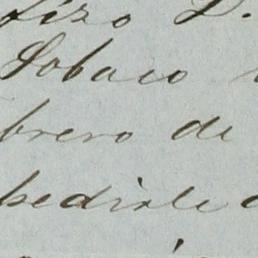 fizo D.
Tobaco
brero de
pedirle